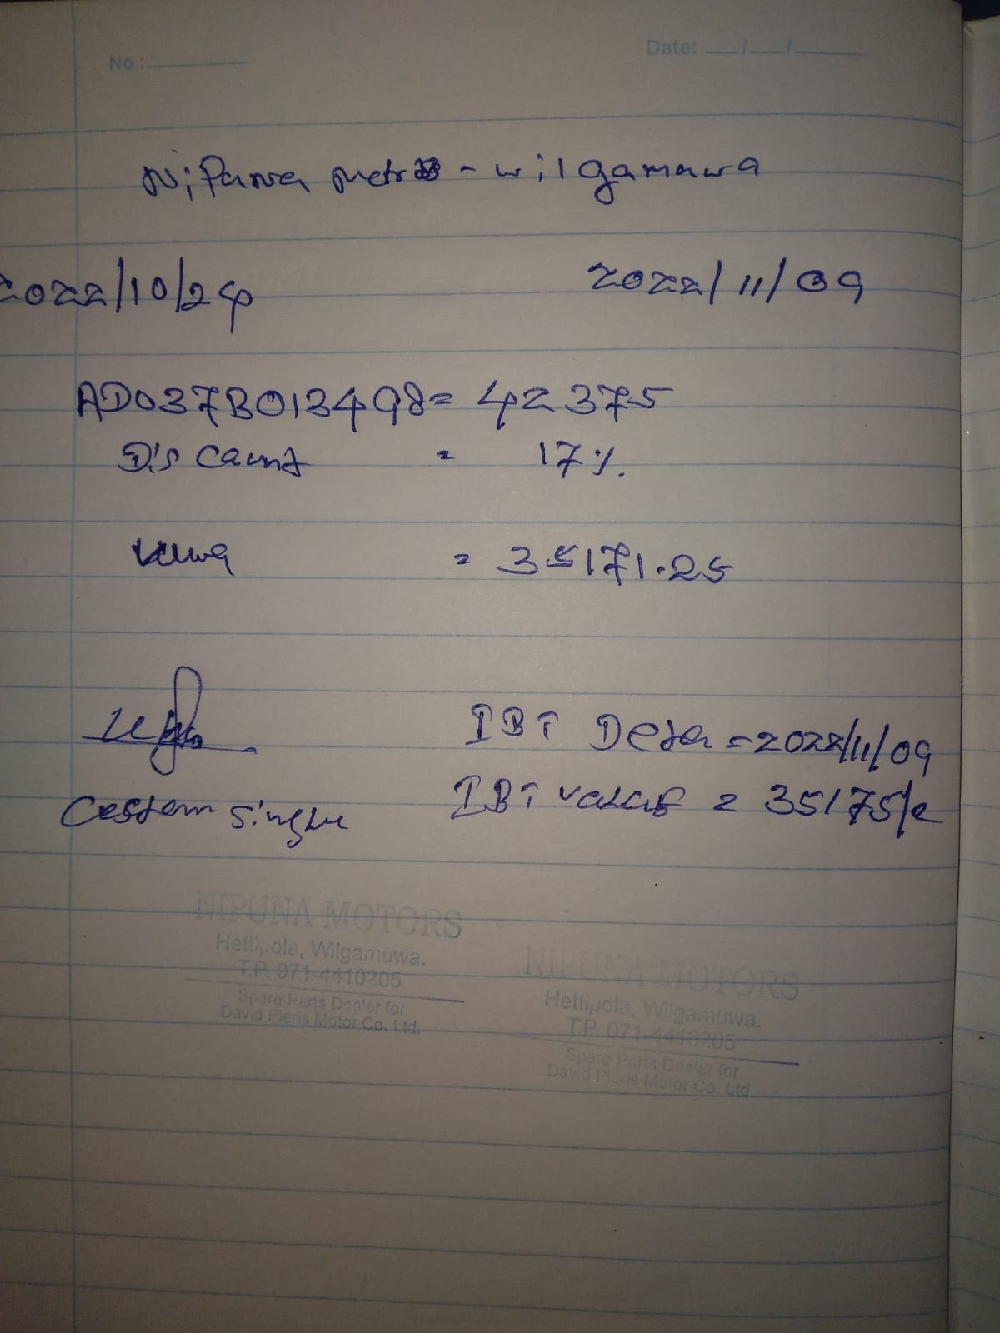 No:
Date: __/__/____
Nipuna - wilgamuwa
2022/10/24
2022/11/09
AD037B013498= 42375
Discount = 17%.
= 35171.25
IBT = 2022/11/09
IBT = 35175/=
singhe
NIPUNA MOTORS
Hettipola, Wilgamuwa.
T.P. 071-4410205
Spare Parts Dealer for
David Pieris Motor Co. Ltd.
NIPUNA MOTORS
Hettipola, Wilgamuwa.
T.P. 071-4410205
Spare Parts Dealer for
David Pieris Motor Co. Ltd.